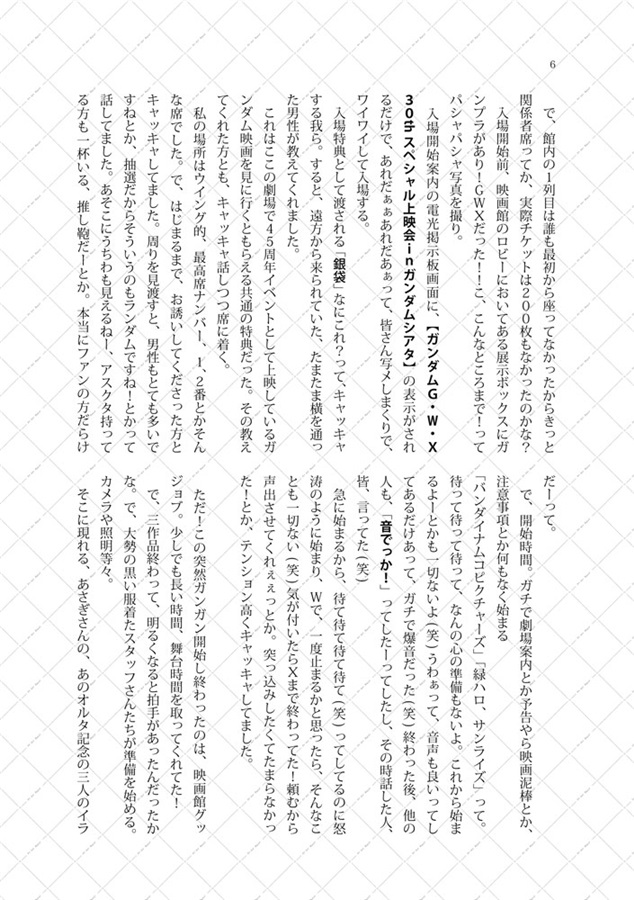 6
で、館内の1列目は誰も最初から座ってなかったからきっと
関係者席ってか、実際チケットは200枚もなかったのかな?
入場開始前、映画館のロビーにおいてある展示ボックスにガ
ンプラがあり!GWXだった!!こ、こんなところまで!って
パシャパシャ写真を撮り。
入場開始案内の電光掲示板画面に、【ガンダムG・W・X
30thスペシャル上映会inガンダムシアタ】の表示がされ
るだけで、あれだぁぁあれだあぁって、皆さん写メしまくりで、
ワイワイして入場する。
入場特典として渡される「銀袋」なにこれ?って、キャッキャ
する我ら。すると、遠方から来られていた、たまたま横を通っ
た男性が教えてくれました。
これはここの劇場で45周年イベントとして上映しているガ
ンダム映画を見に行くともらえる共通の特典だった。その教え
てくれた方とも、キャッキャ話しつつ席に着く。
私の場所はウイング的、最高席ナンバー、1、2番とかそん
な席でした。で、はじまるまで、お誘いしてくださった方と
キャッキャしてました。周りを見渡すと、男性もとても多いで
すねとか、抽選だからそういうのもランダムですね!とかって
話してました。あそこにうちわも見えるねー、アスクタ持って
る方も一杯いる、推し鞄だーとか。本当にファンの方だらけ
だーって。
で、開始時間。ガチで劇場案内とか予告やら映画泥棒とか、
注意事項とか何もなく始まる
「バンダイナムコピクチャーズ」「緑ハロ、サンライズ」って。
待って待って待って、なんの心の準備もないよ。これから始ま
るよーとかも一切ないよ(笑)うわぁって、音声も良いってし
てあるだけあって、ガチで爆音だった(笑)終わった後、他の
人も、「音でっか!」ってしたーってしたし、その時話した人、
皆、言ってた(笑)
急に始まるから、待て待て待て待て(笑)ってしてるのに怒
涛のように始まり、Wで、一度止まるかと思ったら、そんなこ
とも一切ない(笑)気が付いたらXまで終わってた!頼むから
声出させてくれぇぇっとか。突っ込みしたくてたまらなかっ
た!とか、テンション高くキャッキャしてました。
ただ!この突然ガンガン開始し終わったのは、映画館グッ
ジョブ。少しでも長い時間、舞台時間を取ってくれてた!
で、三作品終わって、明るくなると拍手があったんだったか
な。で、大勢の黒い服着たスタッフさんたちが準備を始める。
カメラや照明等々。
そこに現れる、あさぎさんの、あのオルタ記念の三人のイラ